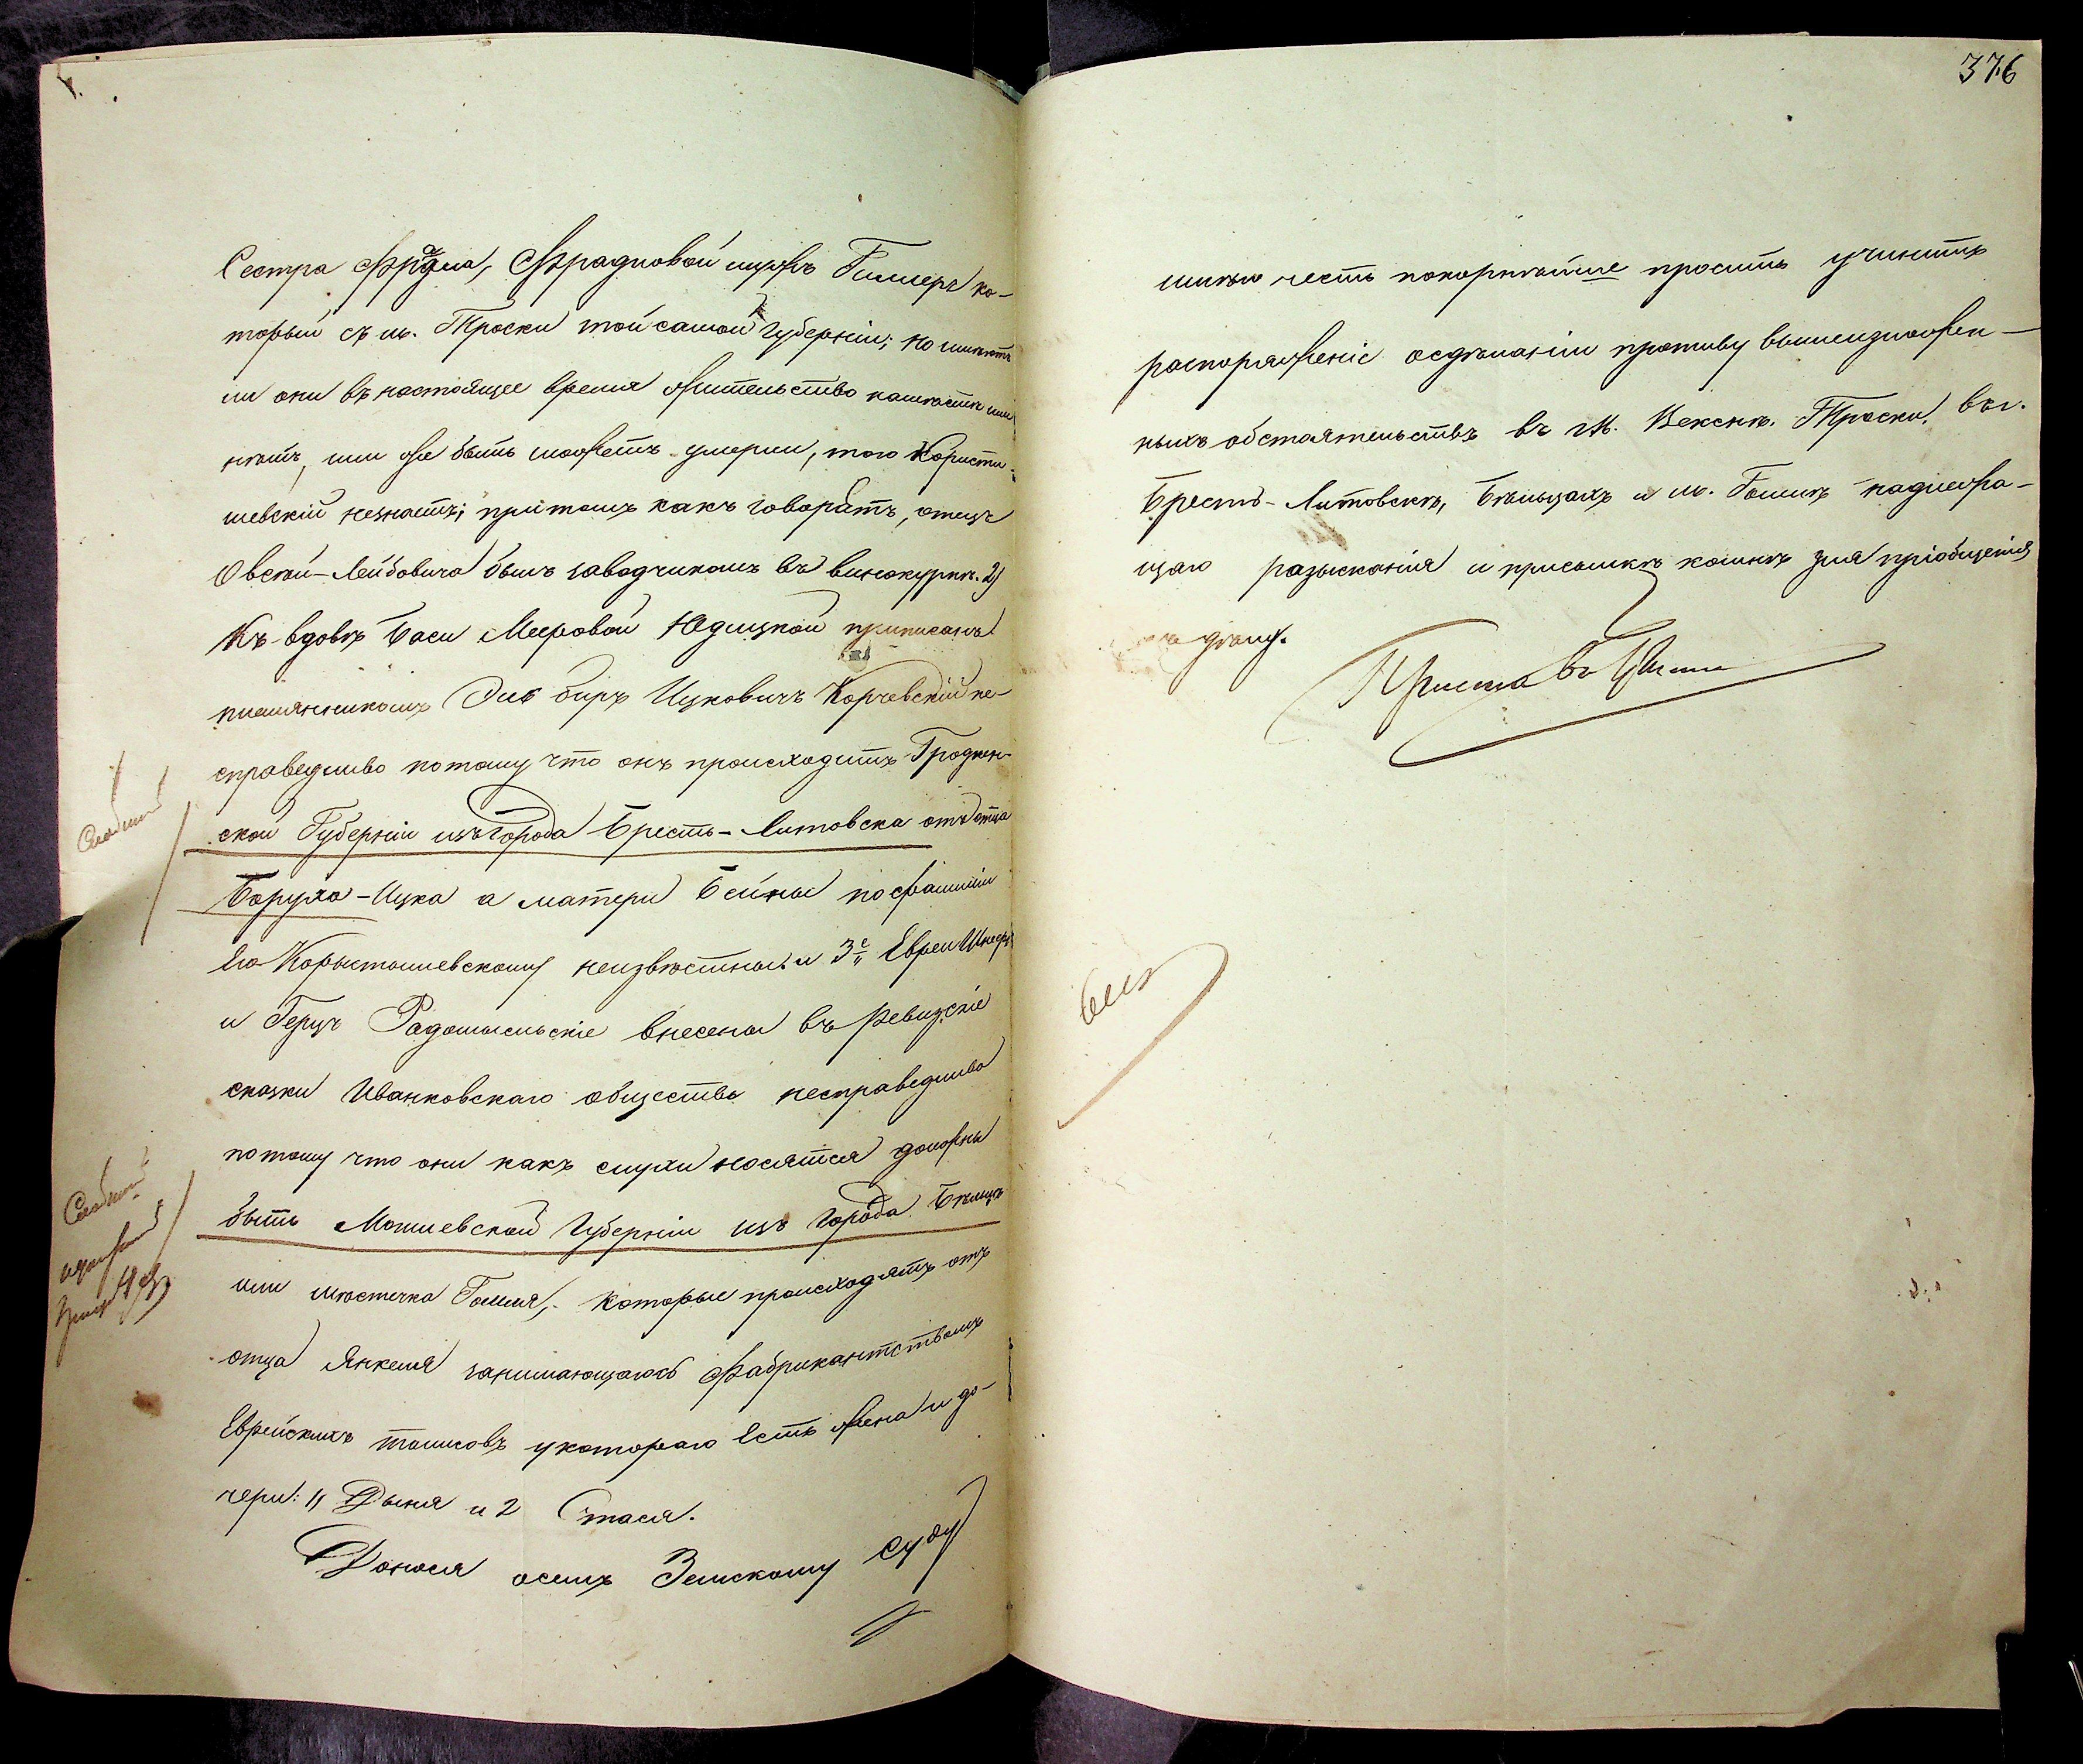 376
Сестра Фрадля, Фрадловой мужъ Гиммеръ ко-
торый съ м. Троски той самой Губерніи; но имѣютъ
ли они въ настоящее время жительство на мѣстѣ или
нѣтъ, или же быть можетъ умерли, того Користы-
шевскій незнаетъ; притомъ какъ говорятъ, отецъ
Овсей-Лейбовича былъ заводчикомъ въ винокурнѣ. 2)
Къ вдовѣ Баси Мееровой Юдицкой приписанъ
племянникомъ биръ Ицковичъ Корчевскій не-
справедливо потому что онъ происходитъ Гроднен-
ской Губерніи изъ города Брестъ-Литовска отъ отца
Боруха-Ицка а матери Бейлы по фамиліи
его Коростышевскому неизвѣстны. и 3е Евреи
и Герцъ Радомысльскіе внесены въ ревизскіе
сказки Иванковскаго общества несправедливо
потому что они какъ слухи носятся должны
быть Могилевской Губерніи изъ города Бѣлицъ
или мѣстечка Гомля, которые происходятъ отъ
отца Янкеля занимающагося Фабрикантствомъ
Еврейскихъ талисовъ у котораго есть жена и до-
чери: 1) Дыня и 2 Стася.
Донося о семъ Земскому Суду
имѣю честь покорнѣйше просить учинить
распоряженіе о сдѣланіи противу вышеизложен-
ныхъ обстоятельствъ въ м. Троски, въ г.
Брестъ-Литовскѣ, Бѣлицахъ и м. Гомлѣ надлежа-
щаго разысканія и присылкѣ ко мнѣ для пріобщенія
дѣлу.
Приставъ